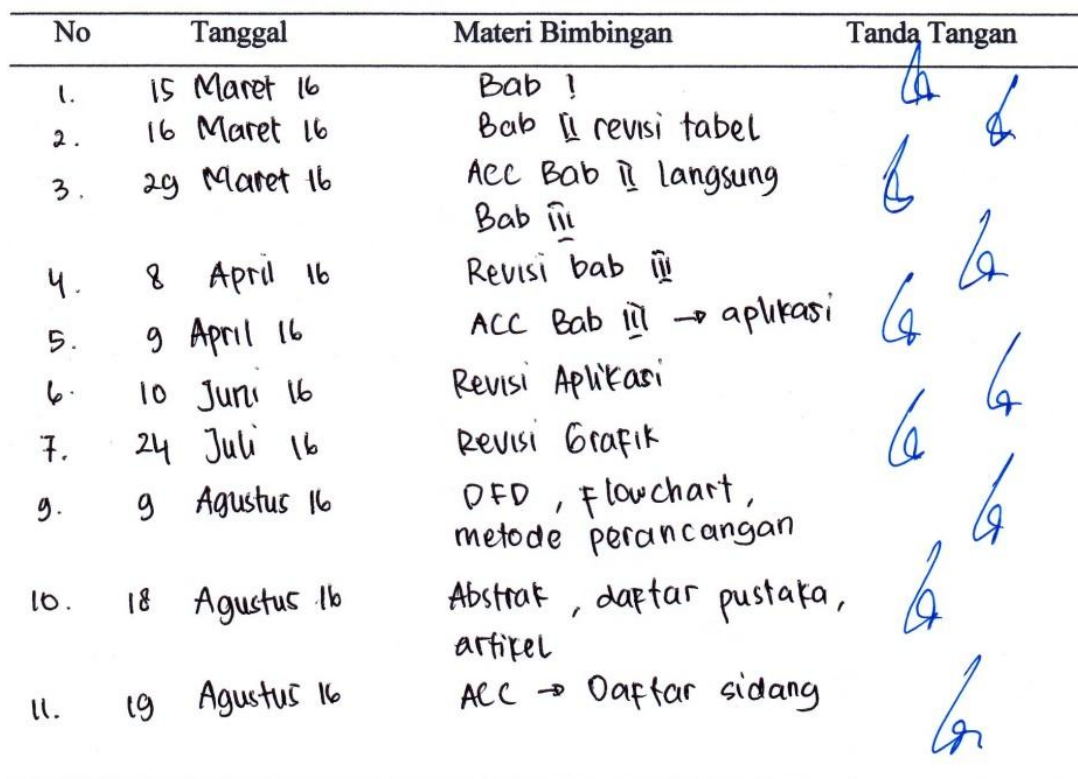 No Tanggal Materi Bimbingan Tanda Tangan
1. 15 Maret 16 Bab I
2. 16 Maret 16 Bab II revisi tabel
3. 29 Maret 16 ACC Bab II langsung
Bab III
4. 8 April 16 Revisi bab III
5. 9 April 16 ACC Bab III → aplikasi
6. 10 Juni 16 Revisi Aplikasi
7. 24 Juli 16 Revisi Grafik
9. 9 Agustus 16 DFD, Flowchart,
metode perancangan
10. 18 Agustus 16 Abstrak, daftar pustaka,
artikel
11. 19 Agustus 16 ACC → Daftar sidang